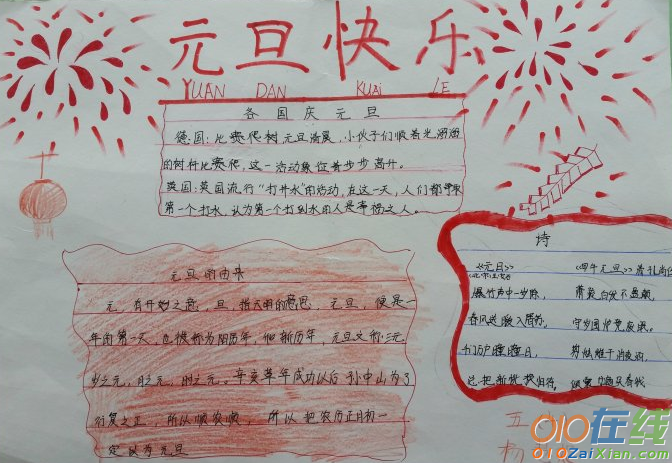 元旦快乐
YUAN DAN KUAi LE
各国庆元旦
德国:比赛爬树元旦清晨,小伙子们顺着光溜溜
的树杆比赛爬,这一活动象征着步步高升。
英国:英国流行"打井水"的活动,在这一天,人们都争取
第一个打水,认为第一个打到水的人是幸福之人。
元旦的由来
元,有开始之意,旦,指天明的意思,元旦,便是一
年的第一天,也被称为阳历年,新历年,元旦又称三元
岁之元,月之元,时之元。辛亥革命成功以后孙中山为了
行夏之正,所以顺农顺,所以把农历正月初一
定以为元旦
诗
《元日》
爆竹声中一岁除,
春风送暖入屠苏,
千门万户瞳瞳日,
总把新桃换旧符,
《四午元旦》 孔尚任
萧疏白发不盈颠,
守岁围炉竟废眠。
剪烛催干消夜酒,
五
杨
010在线
010ZaiXian.com